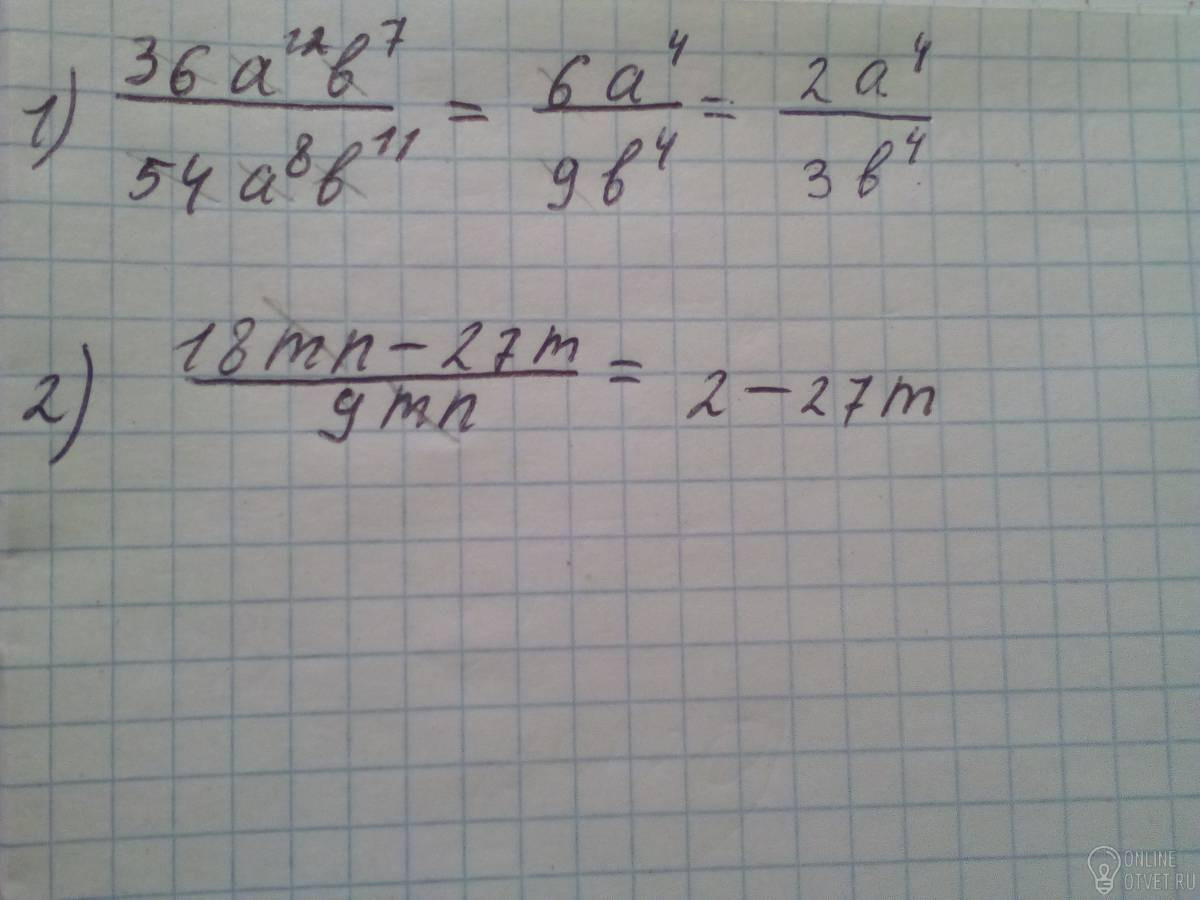 1) 36a¹²b⁷ / 54a⁸b¹¹ = 6a⁴ / 9b⁴ = 2a⁴ / 3b⁴
2) 18mn - 27m / 9mn = 2 - 27m
ONLINE
OTVET.RU